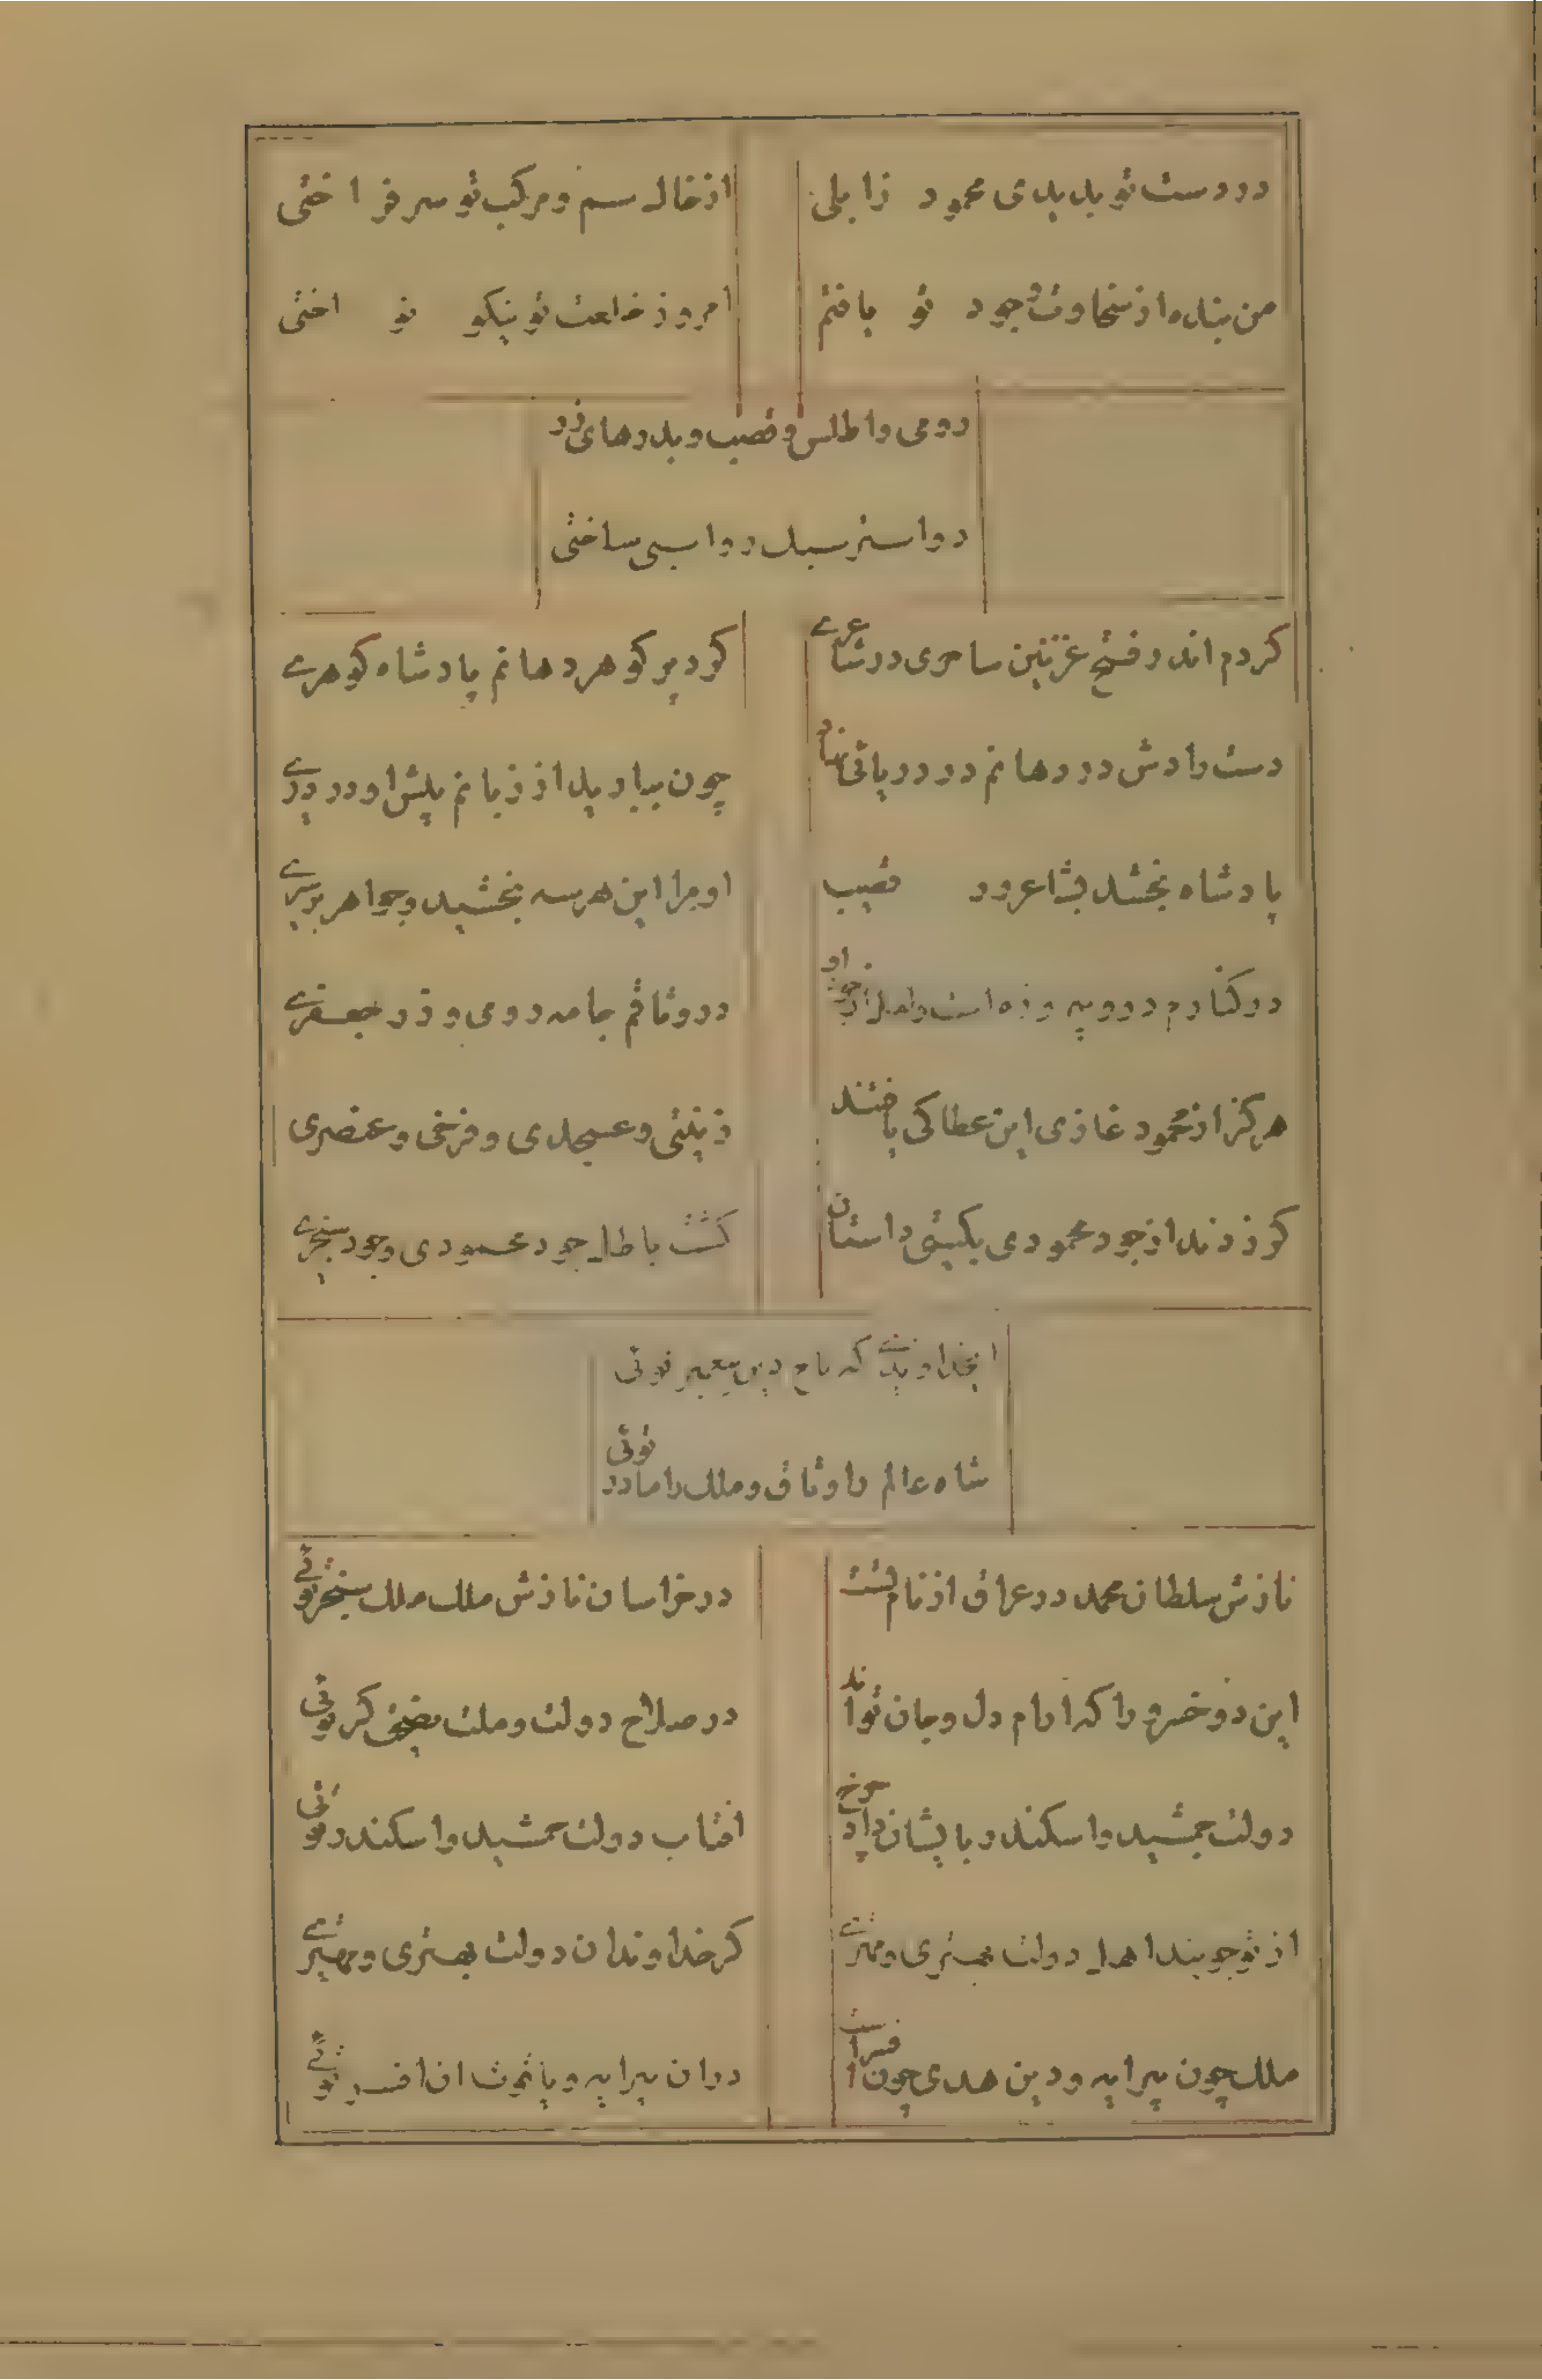 در دست تو بدیدی محمود زابلی
از خاک سم مرکب تو سرفراختی
من بنده از سخاوت و جود تو یافتم
امروز خلعت تو نیکو نواختی
رومی و اطلس و قصب و بدرهای زر
دو استر سبک دو اسبی ساختی
کردم اندر فتح غزنین ساحری در شاعری
کرد پر گوهر دهانم پادشاه گوهری
دست رادش در دهانم در دریائی نهاد
چون بیارید از زبانم پیش او در دری
پادشاه بخشد بشاعر زر قصیب
او مرا این هر سه بخشید و جواهر بر سری
در کنارم در و پیروزه است و لعل از جود او
در وثاقم جامه رومی و زر جعفری
هرگز از محمود غازی این عطا کی یافتند
زینتی و عسجدی و فرخی و عنصری
گر زدند از جود محمودی بگیتی داستان
گشت باطل جود محمودی ز جود سنجری
ای خداوندی که تاج دین پیغمبر توئی
شاه عالم را و ثاق و ملک را مادر توئی
نازش سلطان محمد در عراق از نام تست
در خراسان نازش ملک ملک سنجر توئی
این دو خسرو را که آرام دل و جان تواند
در صلاح دولت و ملت نصیحت گر توئی
دولت جمشید و اسکندر بایشان داد چرخ
آفتاب دولت جمشید و اسکندر توئی
از تو جویند اهل دولت بهتری و مهتری
کز خداوندان دولت بهتر و مهتر توئی
ملک چون پیرایه و دین هدی چون افسر است
در آن پیرایه و یاقوت آن افسر توئی